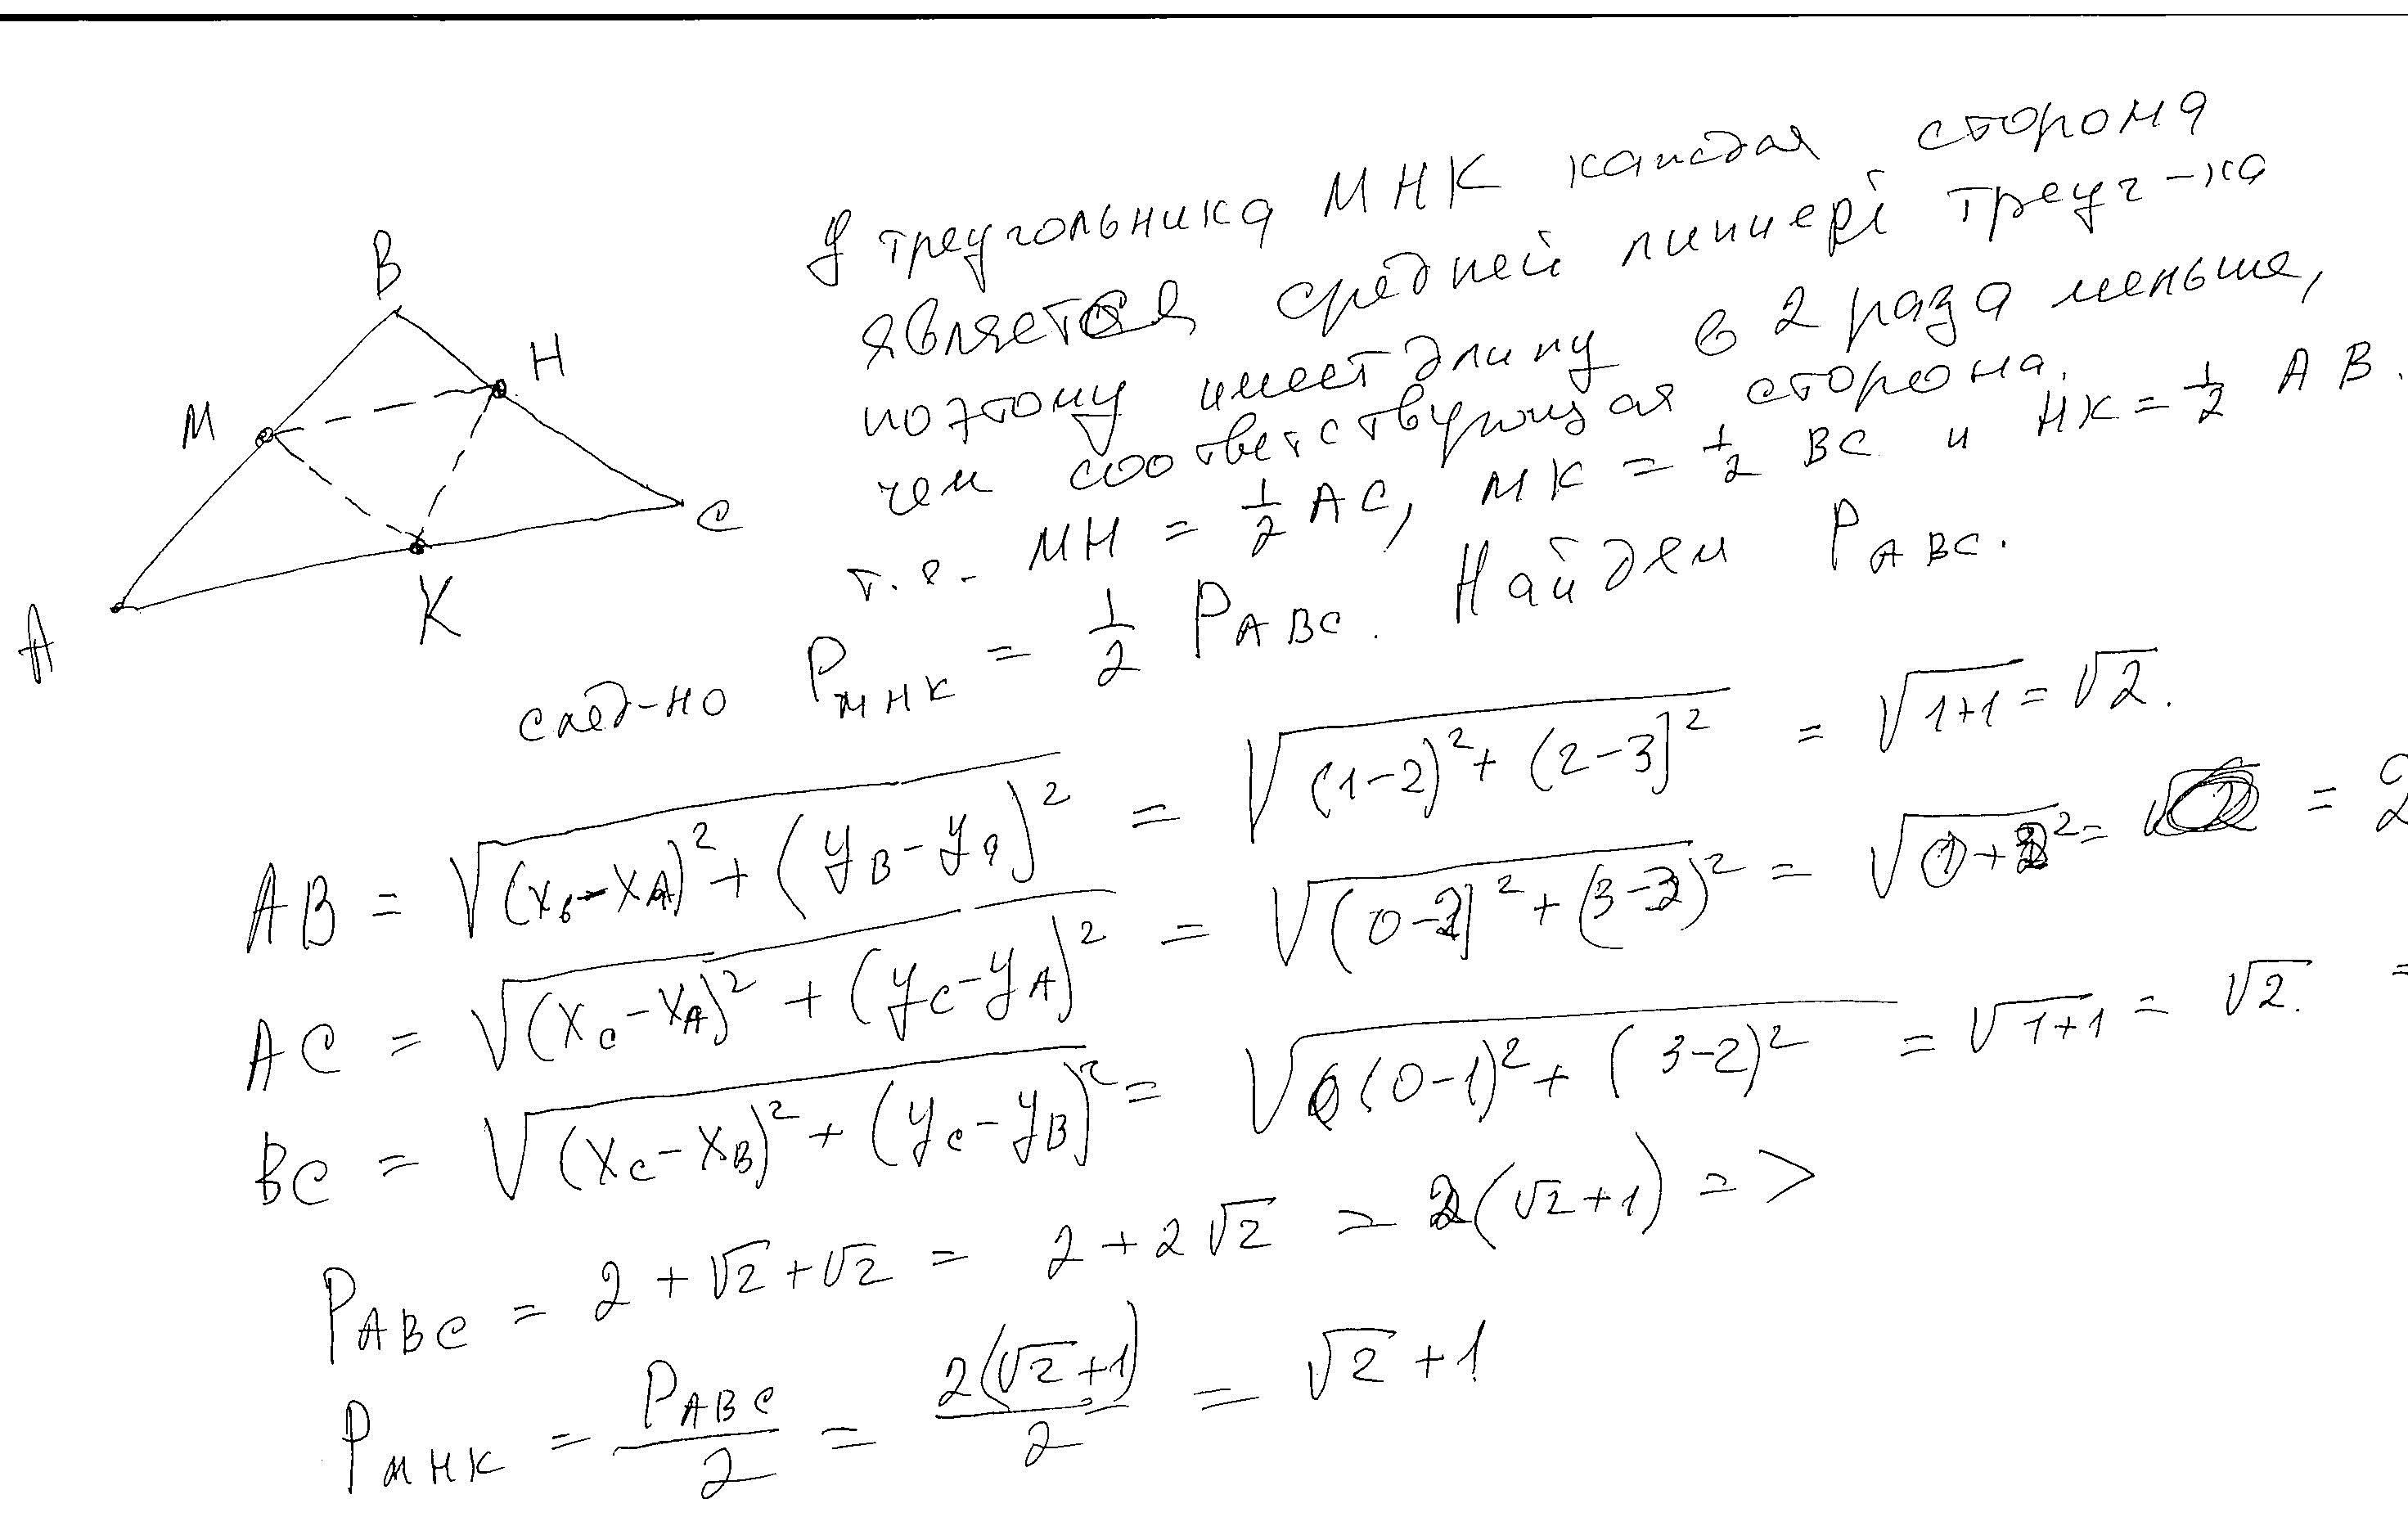 B
H
M
C
A
K
У треугольника МНК каждая сторона
является средней линией треуг-ка
поэтому имеет длину в 2 раза меньше,
чем соответствующая сторона.
т.е. MH = 1/2 AC, MK = 1/2 BC и HK = 1/2 AB.
след-но P_MHK = 1/2 P_ABC. Найдем P_ABC.
AB = √((x_B-x_A)² + (y_B-y_A)²) = √((1-2)² + (2-3)²) = √(1+1) = √2.
AC = √((x_C-x_A)² + (y_C-y_A)²) = √((0-2)² + (3-3)²) = = 2
BC = √((x_C-x_B)² + (y_C-y_B)²) = √((0-1)² + (3-2)²) = √(1+1) = √2. =
P_ABC = 2 + √2 + √2 = 2 + 2√2 = 2(√2+1) =>
P_MHK = P_ABC/2 = 2(√2+1)/2 = √2 + 1